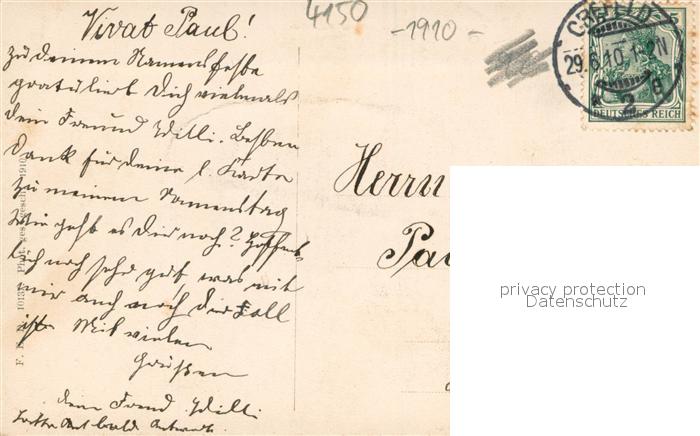 Vivat Paul!
4150
-1910-
zu Deinem Namensfeste
gratuliert Dich vielmals
Dein Freund Willi. Besten
Dank für Deine l. Karte
zu meinem Namenstag
Wie geht es Dir noch? Hoffent-
lich noch sehr gut was mit
mir auch noch der Fall
ist. Mit vielen
Grüßen
Dein Freund Willi
Bitte bald Antwort.
CREFELD
29.6.10. 1-2N
* 2 g
DEUTSCHES REICH
Herrn
Pau
privacy protection
Datenschutz
1910